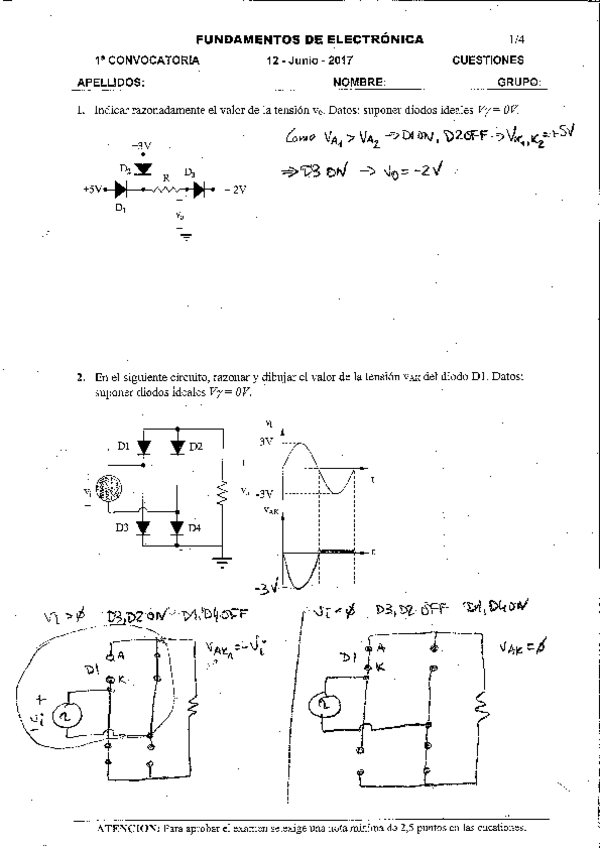 FUNDAMENTOS DE ELECTRÓNICA 1/4
1ª CONVOCATORIA 12 - Junio - 2017 CUESTIONES
APELLIDOS: NOMBRE: GRUPO:
1. Indicar razonadamente el valor de la tensión v₀. Datos: suponer diodos ideales Vγ = 0V.
Como VA₁ > VA₂ → D1 ON, D2 OFF → VK₁,K₂ = +5V
⇒ D3 ON → v₀ = -2V
-3V
D₂
R D₃
+5V - 2V
D₁
v₀
2. En el siguiente circuito, razonar y dibujar el valor de la tensión vAK del diodo D1. Datos:
suponer diodos ideales Vγ = 0V.
D1 D2
vi
D3 D4
vi
3V
t
-3V
vAK
t
-3V
Vi > 0 D3, D2 ON D1, D4 OFF
VAK₁ = -Vi
D1 A
K
+
Vi
Vi < 0 D3, D2 OFF D1, D4 ON
VAK = 0
D1 A
K
ATENCIÓN: Para aprobar el examen se exige una nota mínima de 2,5 puntos en las cuestiones.